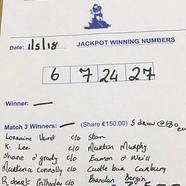 Date: 1/5/18 JACKPOT WINNING NUMBERS
6 7 24 27
Winner:
Match 3 Winners: (Share €150.00) 5 draw @ €30
Lorraine Hurst c/o Stan
K. Lee c/o Martin Murphy
Shane O'Grady c/o Eamon O'Neill
Martina Connolly c/o Castle bar Carbury
Robert c/o Brendan Bergin